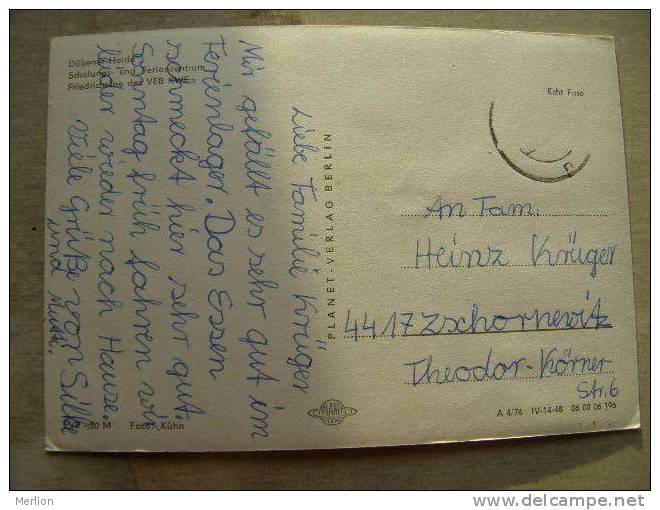 Dübener Heide
Schulungs- und Ferienzentrum
des VEB
Liebe Familie Krüger
Mir gefällt es sehr gut im
Ferienlager. Das Essen
schmeckt hier sehr gut.
Sonntag früh fahren wir
leider wieder nach Hause.
Viele Grüße von Silke
und Mutti.
Foto: Kühn
PLANET-VERLAG BERLIN
PLANET
Echt Foto
An Fam.
Heinz Krüger
4417 Zschornewitz
Theodor-Körner
Str. 6
A 4/76 IV-14-48 06 03 06 196
Merlion
www.delcampe.net